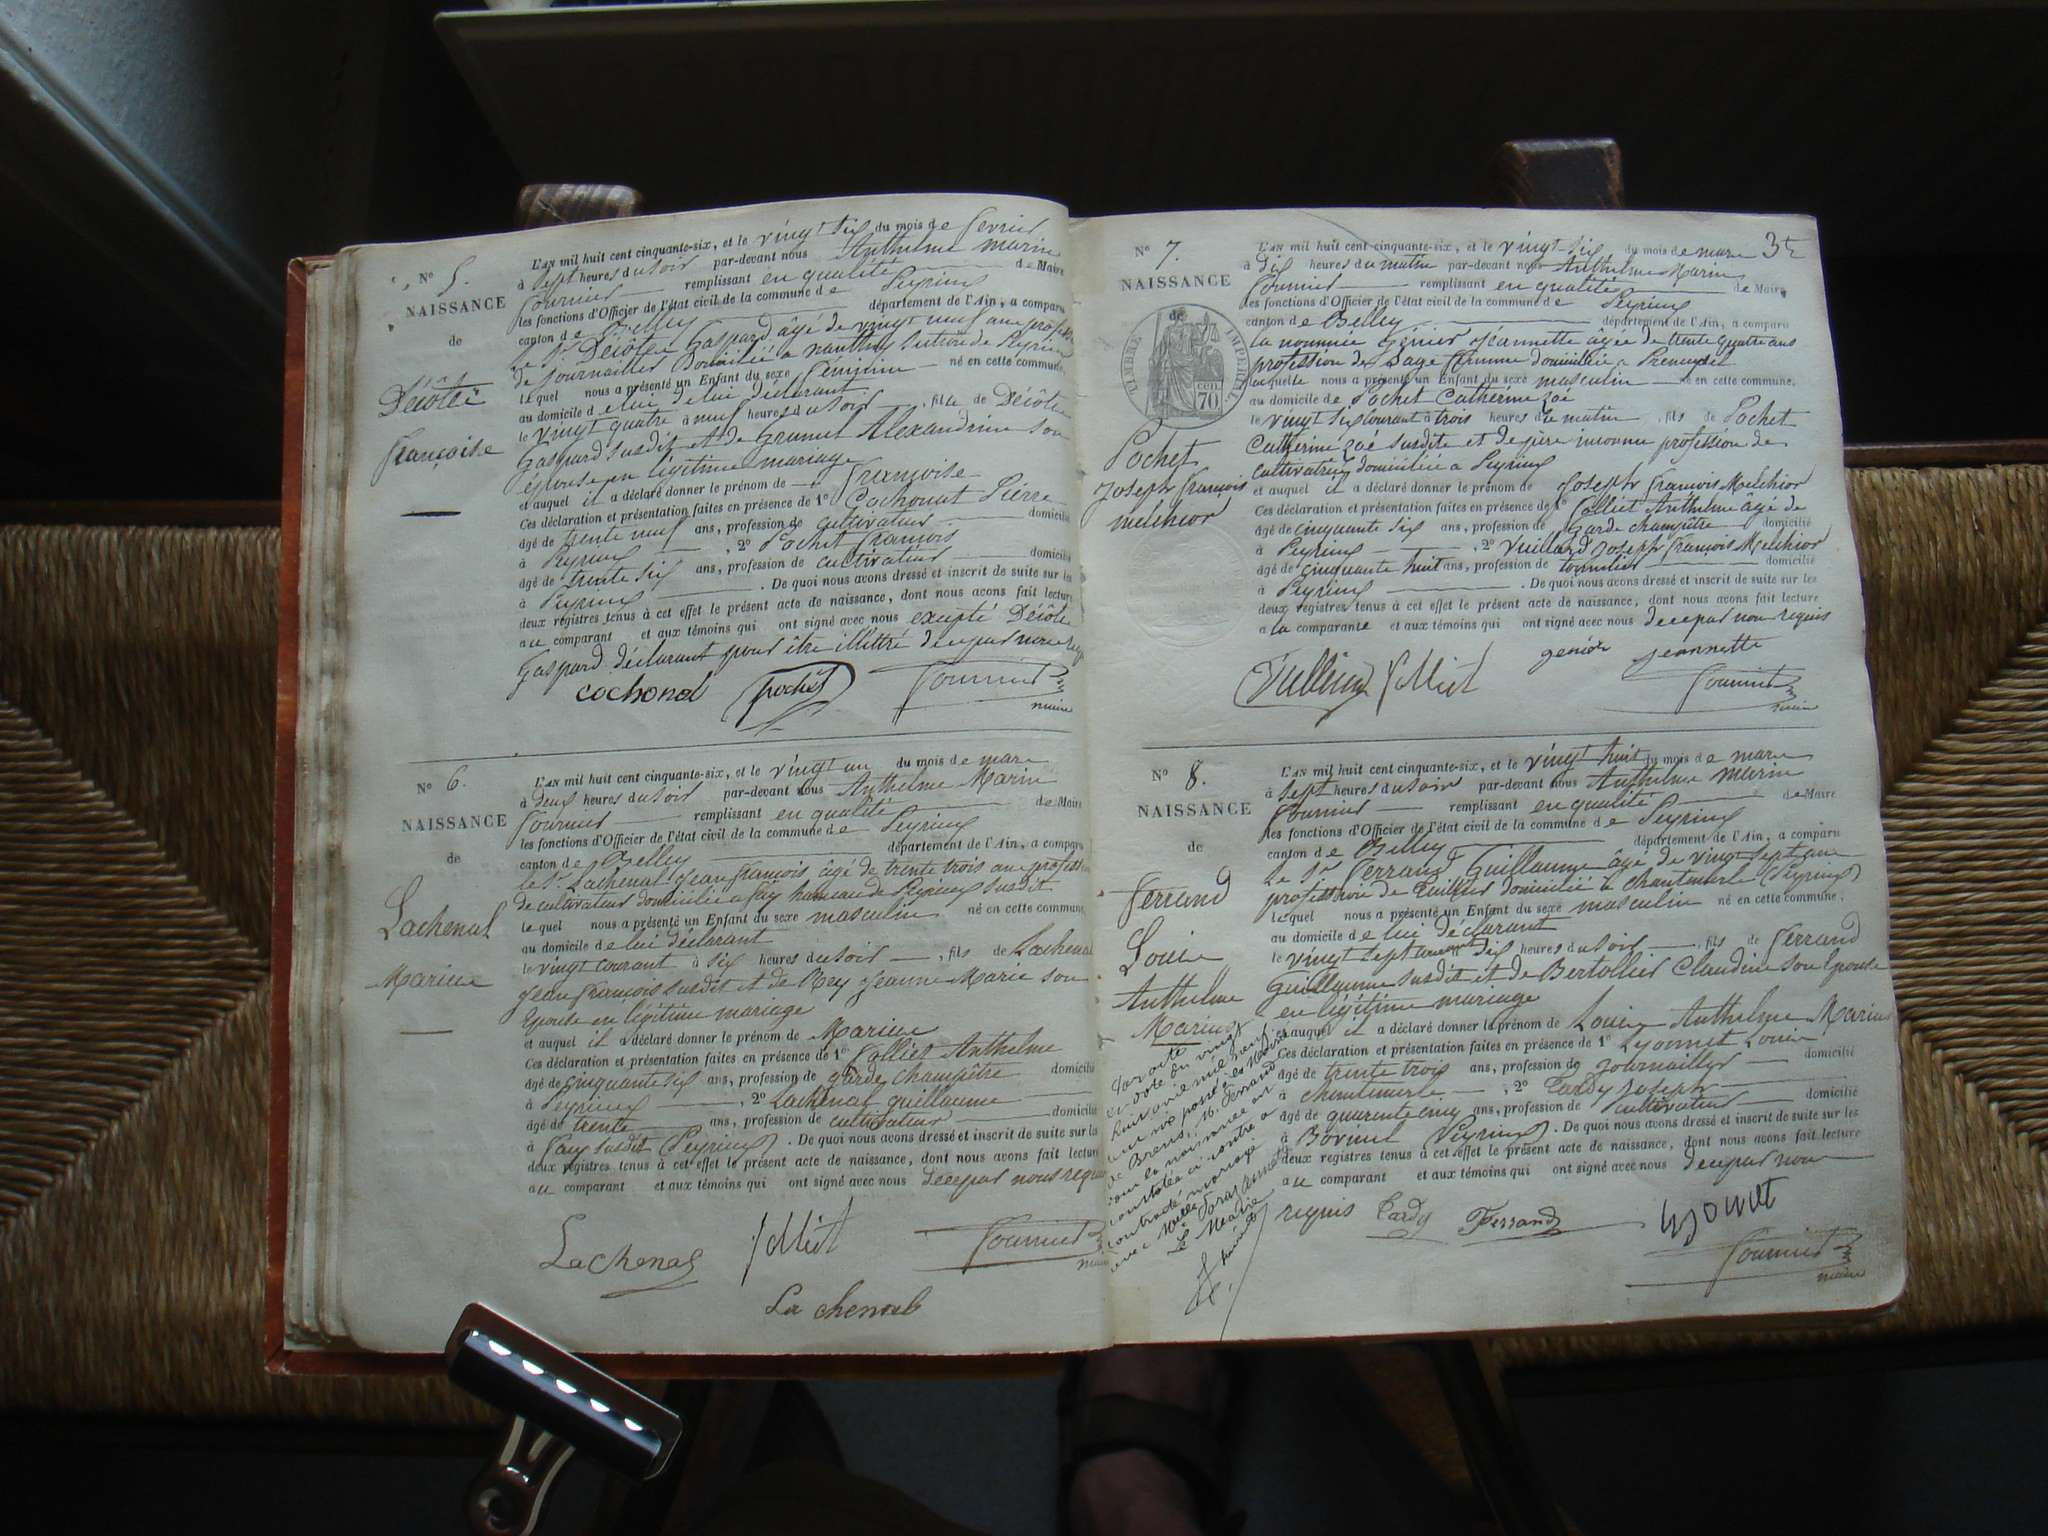 N° 5.
NAISSANCE
de
Décôte
Françoise
L'AN mil huit cent cinquante-six, et le vingt six du mois de fevrier
à sept heures du soir par-devant nous Anthelme Marin
Fournier remplissant en qualité de Maire
les fonctions d'Officier de l'état civil de la commune de Peyrieux
canton de Belley département de l'Ain, a comparu
le Sr Décôte Gaspard âgé de vingt neuf ans profession
de journalier Domicilié a nanthuy section de Peyrieux
lequel nous a présenté un Enfant du sexe féminin né en cette commune,
au domicile de lui déclarant
le vingt quatre à neuf heures du soir, fille de Décôte
Gaspard susdit et de Grumet Alexandrine son
épouse en légitime mariage
et auquel il a déclaré donner le prénom de Françoise
Ces déclaration et présentation faites en présence de 1° Cochonat Pierre
âgé de trente neuf ans, profession de cultivateur domicilié
à Peyrieux, 2° Pochet François
âgé de trente six ans, profession de cultivateur domicilié
à Peyrieux. De quoi nous avons dressé et inscrit de suite sur les
deux registres tenus à cet effet le présent acte de naissance, dont nous avons fait lecture
au comparant et aux témoins qui ont signé avec nous excepté Décôte
Gaspard déclarant pour être illettré de ce par nous req
cochonat pochet Fournier
maire
N° 6.
NAISSANCE
de
Lachenal
Marius
L'AN mil huit cent cinquante-six, et le vingt un du mois de mars
à deux heures du soir par-devant nous Anthelme Marin
Fournier remplissant en qualité de Maire
les fonctions d'Officier de l'état civil de la commune de Peyrieux
canton de Belley département de l'Ain, a comparu
le Sr. Lachenal Jean françois âgé de trente trois ans profession
de cultivateur domicilié a fay hameau de Peyrieux susdit
lequel nous a présenté un Enfant du sexe masculin né en cette commune,
au domicile de lui déclarant
le vingt courant à six heures du soir, fils de Lachenal
Jean françois susdit et de Rey Jeanne Marie son
Epouse en légitime mariage
et auquel il a déclaré donner le prénom de Marius
Ces déclaration et présentation faites en présence de 1° Jolliet Anthelme
âgé de cinquante six ans, profession de garde champêtre domicilié
à Peyrieux, 2° Lachenal guillaume
âgé de trente ans, profession de cultivateur domicilié
à Fay susdit (Peyrieux). De quoi nous avons dressé et inscrit de suite sur les
deux registres tenus à cet effet le présent acte de naissance, dont nous avons fait lecture
au comparant et aux témoins qui ont signé avec nous de ce par nous requis
Lachenal Jolliet Fournier
maire
La chenal
N° 7.
NAISSANCE
de
TIMBRE IMPÉRIAL
70 cen.
Pochet
Joseph françois
melchior
L'AN mil huit cent cinquante-six, et le vingt six du mois de mars 35
à dix heures du matin par-devant nous Anthelme Marin
Fournier remplissant en qualité de Maire
les fonctions d'Officier de l'état civil de la commune de Peyrieux
canton de Belley département de l'Ain, a comparu
la nommée Génier Jeannette âgée de trente quatre ans
profession de Sage femme domiciliée a Premeyzel
laquelle nous a présenté un Enfant du sexe masculin né en cette commune,
au domicile de Pochet Catherine Zoé
le vingt six courant à trois heures du matin, fils de Pochet
Catherine Zoé susdite et de père inconnu profession de
cultivatrice domiciliée a Peyrieux
et auquel il a déclaré donner le prénom de Joseph françois Melchior
Ces déclaration et présentation faites en présence de 1° Jolliet Anthelme âgé de
âgé de cinquante six ans, profession de garde champêtre domicilié
à Peyrieux, 2° Vuillard Joseph françois Melchior
âgé de cinquante huit ans, profession de domicilié
à Peyrieux. De quoi nous avons dressé et inscrit de suite sur les
deux registres tenus à cet effet le présent acte de naissance, dont nous avons fait lecture
a la comparante et aux témoins qui ont signé avec nous de ce par nous requis
Jolliet genier jeannette
Fournier
maire
N° 8.
NAISSANCE
de
Ferrand
Louis
Anthelme
Marius
L'AN mil huit cent cinquante-six, et le vingt huit du mois de mars
à sept heures du soir par-devant nous Anthelme Marin
Fournier remplissant en qualité de Maire
les fonctions d'Officier de l'état civil de la commune de Peyrieux
canton de Belley département de l'Ain, a comparu
Le Sr Ferrand Guillaume âgé de vingt sept ans
profession de tuillier domicilié à chantemerle (Peyrieux)
lequel nous a présenté un Enfant du sexe masculin né en cette commune,
au domicile de lui déclarant
le vingt sept courant à six heures du soir, fils de Ferrand
Guillaume susdit et de Bertollier Claudine son Epouse
en légitime mariage
et auquel il a déclaré donner le prénom de Louis Anthelme Marius
Ces déclaration et présentation faites en présence de 1° Lyonnet Louis
âgé de trente trois ans, profession de journaillier domicilié
à chantemerle, 2° Tardy Joseph
âgé de quarente cinq ans, profession de cultivateur domicilié
à (Peyrieux). De quoi nous avons dressé et inscrit de suite sur les
deux registres tenus à cet effet le présent acte de naissance, dont nous avons fait lecture
au comparant et aux témoins qui ont signé avec nous de ce par nous
requis Tardy Ferrand Lyonnet
Fournier
maire
Par acte
en date du vingt
huit mil neuf cent
de Brens, M. Ferrand
dont la naissance est
constatée ci contre a
contracté mariage
avec Melle
Le Maire